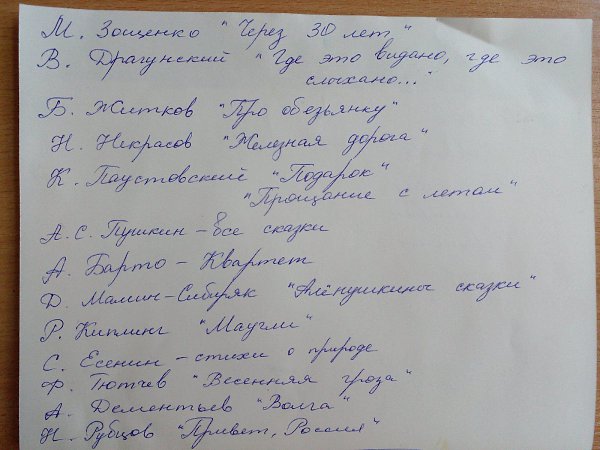 М. Зощенко "Через 30 лет"
В. Драгунский "Где это видано, где это
слыхано..."
Б. Житков "Про обезьянку"
Н. Некрасов "Железная дорога"
К. Паустовский "Подарок"
"Прощание с летом"
А.С. Пушкин - все сказки
А. Барто - Квартет
Д. Мамин-Сибиряк "Алёнушкины сказки"
Р. Киплинг "Маугли"
С. Есенин - стихи о природе
Ф. Тютчев "Весенняя гроза"
А. Дементьев "Волга"
Н. Рубцов "Привет, Россия"